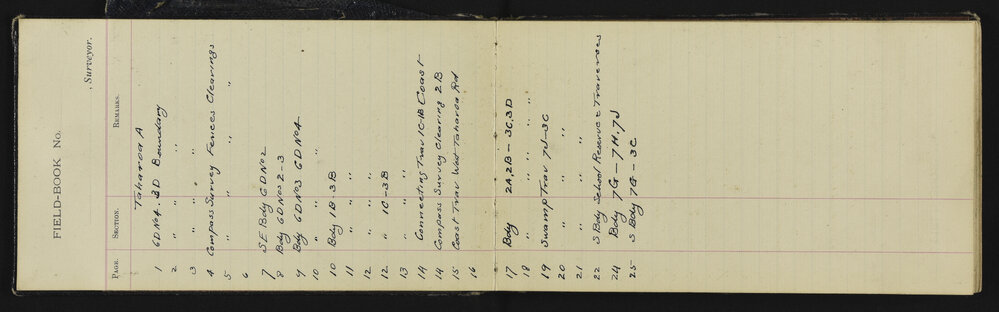 FIELD-BOOK No.
, Surveyor.
PAGE. SECTION. REMARKS.
Taharoa A
1 6D No4. 3D Boundary
2 " " "
3 " " "
4 Compass Survey Fences Clearings
5 " " " "
6
7 SE Bdy 6D No2
8 Bdy 6D Nos 2-3
9 Bdy 6D No3 6D No4
10 " "
10 Bdy 1B-3B
11 " "
12 " "
12 " 1C-3B
13 " "
14 Connecting Trav 1C-1B Coast
14 Compass Survey Clearing 2B
15 Coast Trav West Taharoa Rd
16
17 Bdy 2A, 2B-3C, 3D
18 " " " "
19 Swamp Trav 7J-3C
20 " "
21 " "
22 S Bdy School Reserve & Traverses
24 Bdy 7G-7H, 7J
25 S Bdy 7G-3C